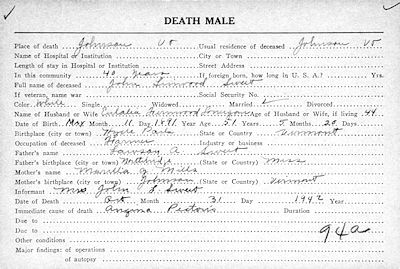 DEATH MALE
Place of death Johnson Vt Usual residence of deceased Johnson Vt
Name of Hospital or Institution City or Town
Length of stay in Hospital or Institution Street Address
In this community 40 years If foreign born, how long in U. S. A.? Yrs.
Full name of deceased John Sweet
If veteran, name war Social Security No.
Color White Single Widowed Married ✓ Divorced
Name of Husband or Wife Age of Husband or Wife, if living 44
Date of Birth May Month 11 Day 1891 Year Age 51 Years 5 Months 20 Days
Birthplace (city or town) Hyde Park State or Country Vermont
Occupation of deceased Farmer Industry or business
Father's name A Sweet
Father's birthplace (city or town) (State or Country) Mass
Mother's name Marilla J. Mills
Mother's birthplace (city or town) Johnson (State or Country) Vermont
Informant Mrs John S. Sweet
Date of Death Oct Month 31 Day 1942 Year
Immediate cause of death Angina Pectoris Duration
Due to 94a
Due to
Other conditions
Major findings: of operations
of autopsy